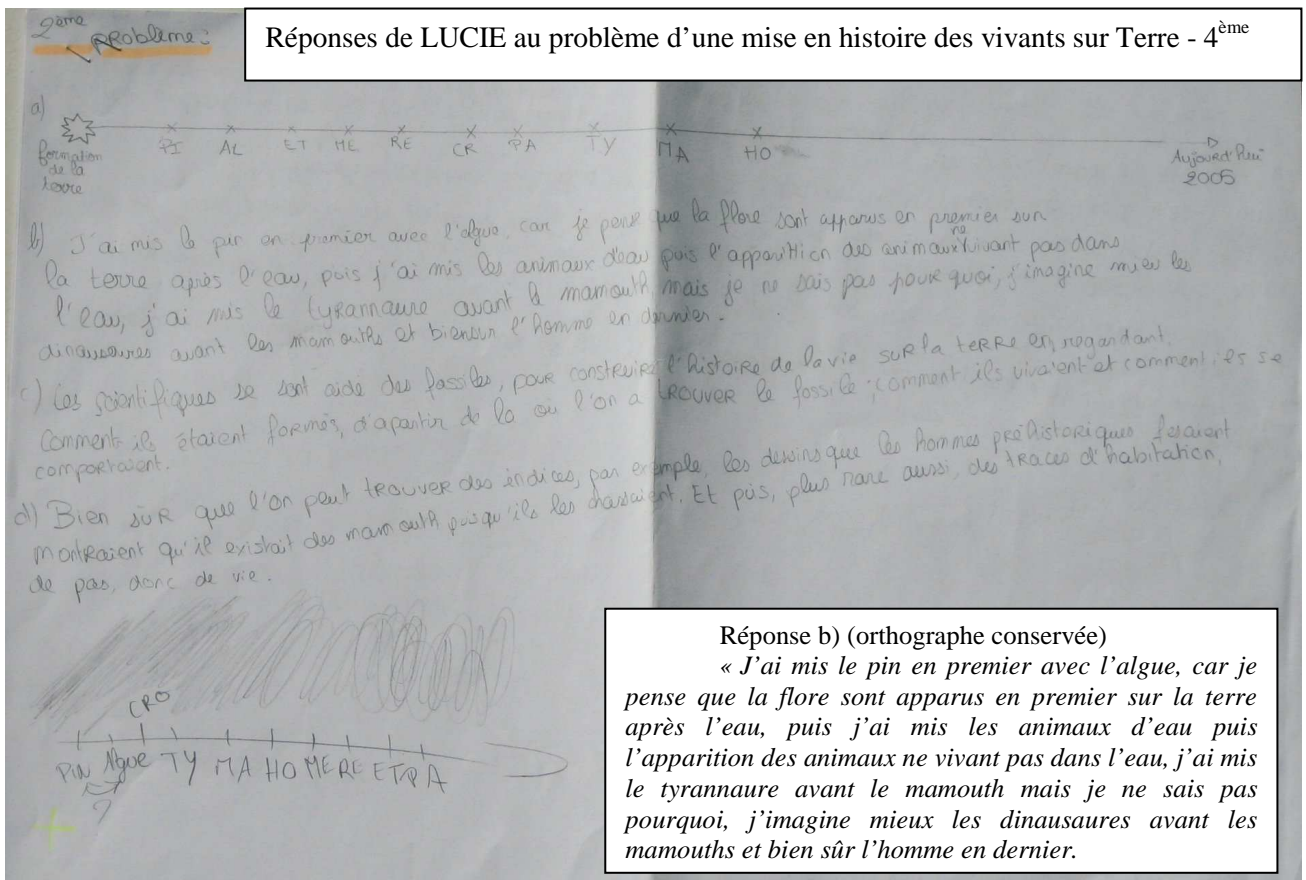 2ème
Problème :
Réponses de LUCIE au problème d’une mise en histoire des vivants sur Terre - 4ème
a)
formation
de la
terre
PI AL ET ME RE CR PA TY MA HO
Aujourd'hui
2005
b) J'ai mis le pin en premier avec l'algue, car je pense que la flore sont apparus en premier sur
la terre après l'eau, puis j'ai mis les animaux d'eau puis l'apparittion des animaux ne vivant pas dans
l'eau, j'ai mis le tyrannaure avant le mamouth mais je ne sais pas pourquoi, j'imagine mieu les
dinausaures avant les mamouths et biensur l'homme en dernier.
c) Les scientifiques se sont aidé des fossiles, pour construire l'histoire de la vie sur la terre en regardant
comment ils étaient formés, d'apartir de la où l'on a trouver le fossile, comment ils vivaient et comment ils se
comportaient.
d) Bien sûr que l'on peut trouver des indices, par exemple, les dessins que les hommes préhistoriques fesaient
montraient qu'il existait des mamouth puisqu'ils les chassaient. Et puis, plus rare aussi, des traces d'habitation,
de pas, donc de vie.
CRO
PIN Algue TY MA HO ME RE ET PA
?
Réponse b) (orthographe conservée)
« J’ai mis le pin en premier avec l’algue, car je
pense que la flore sont apparus en premier sur la terre
après l’eau, puis j’ai mis les animaux d’eau puis
l’apparition des animaux ne vivant pas dans l’eau, j’ai mis
le tyrannaure avant le mamouth mais je ne sais pas
pourquoi, j’imagine mieux les dinausaures avant les
mamouths et bien sûr l’homme en dernier.